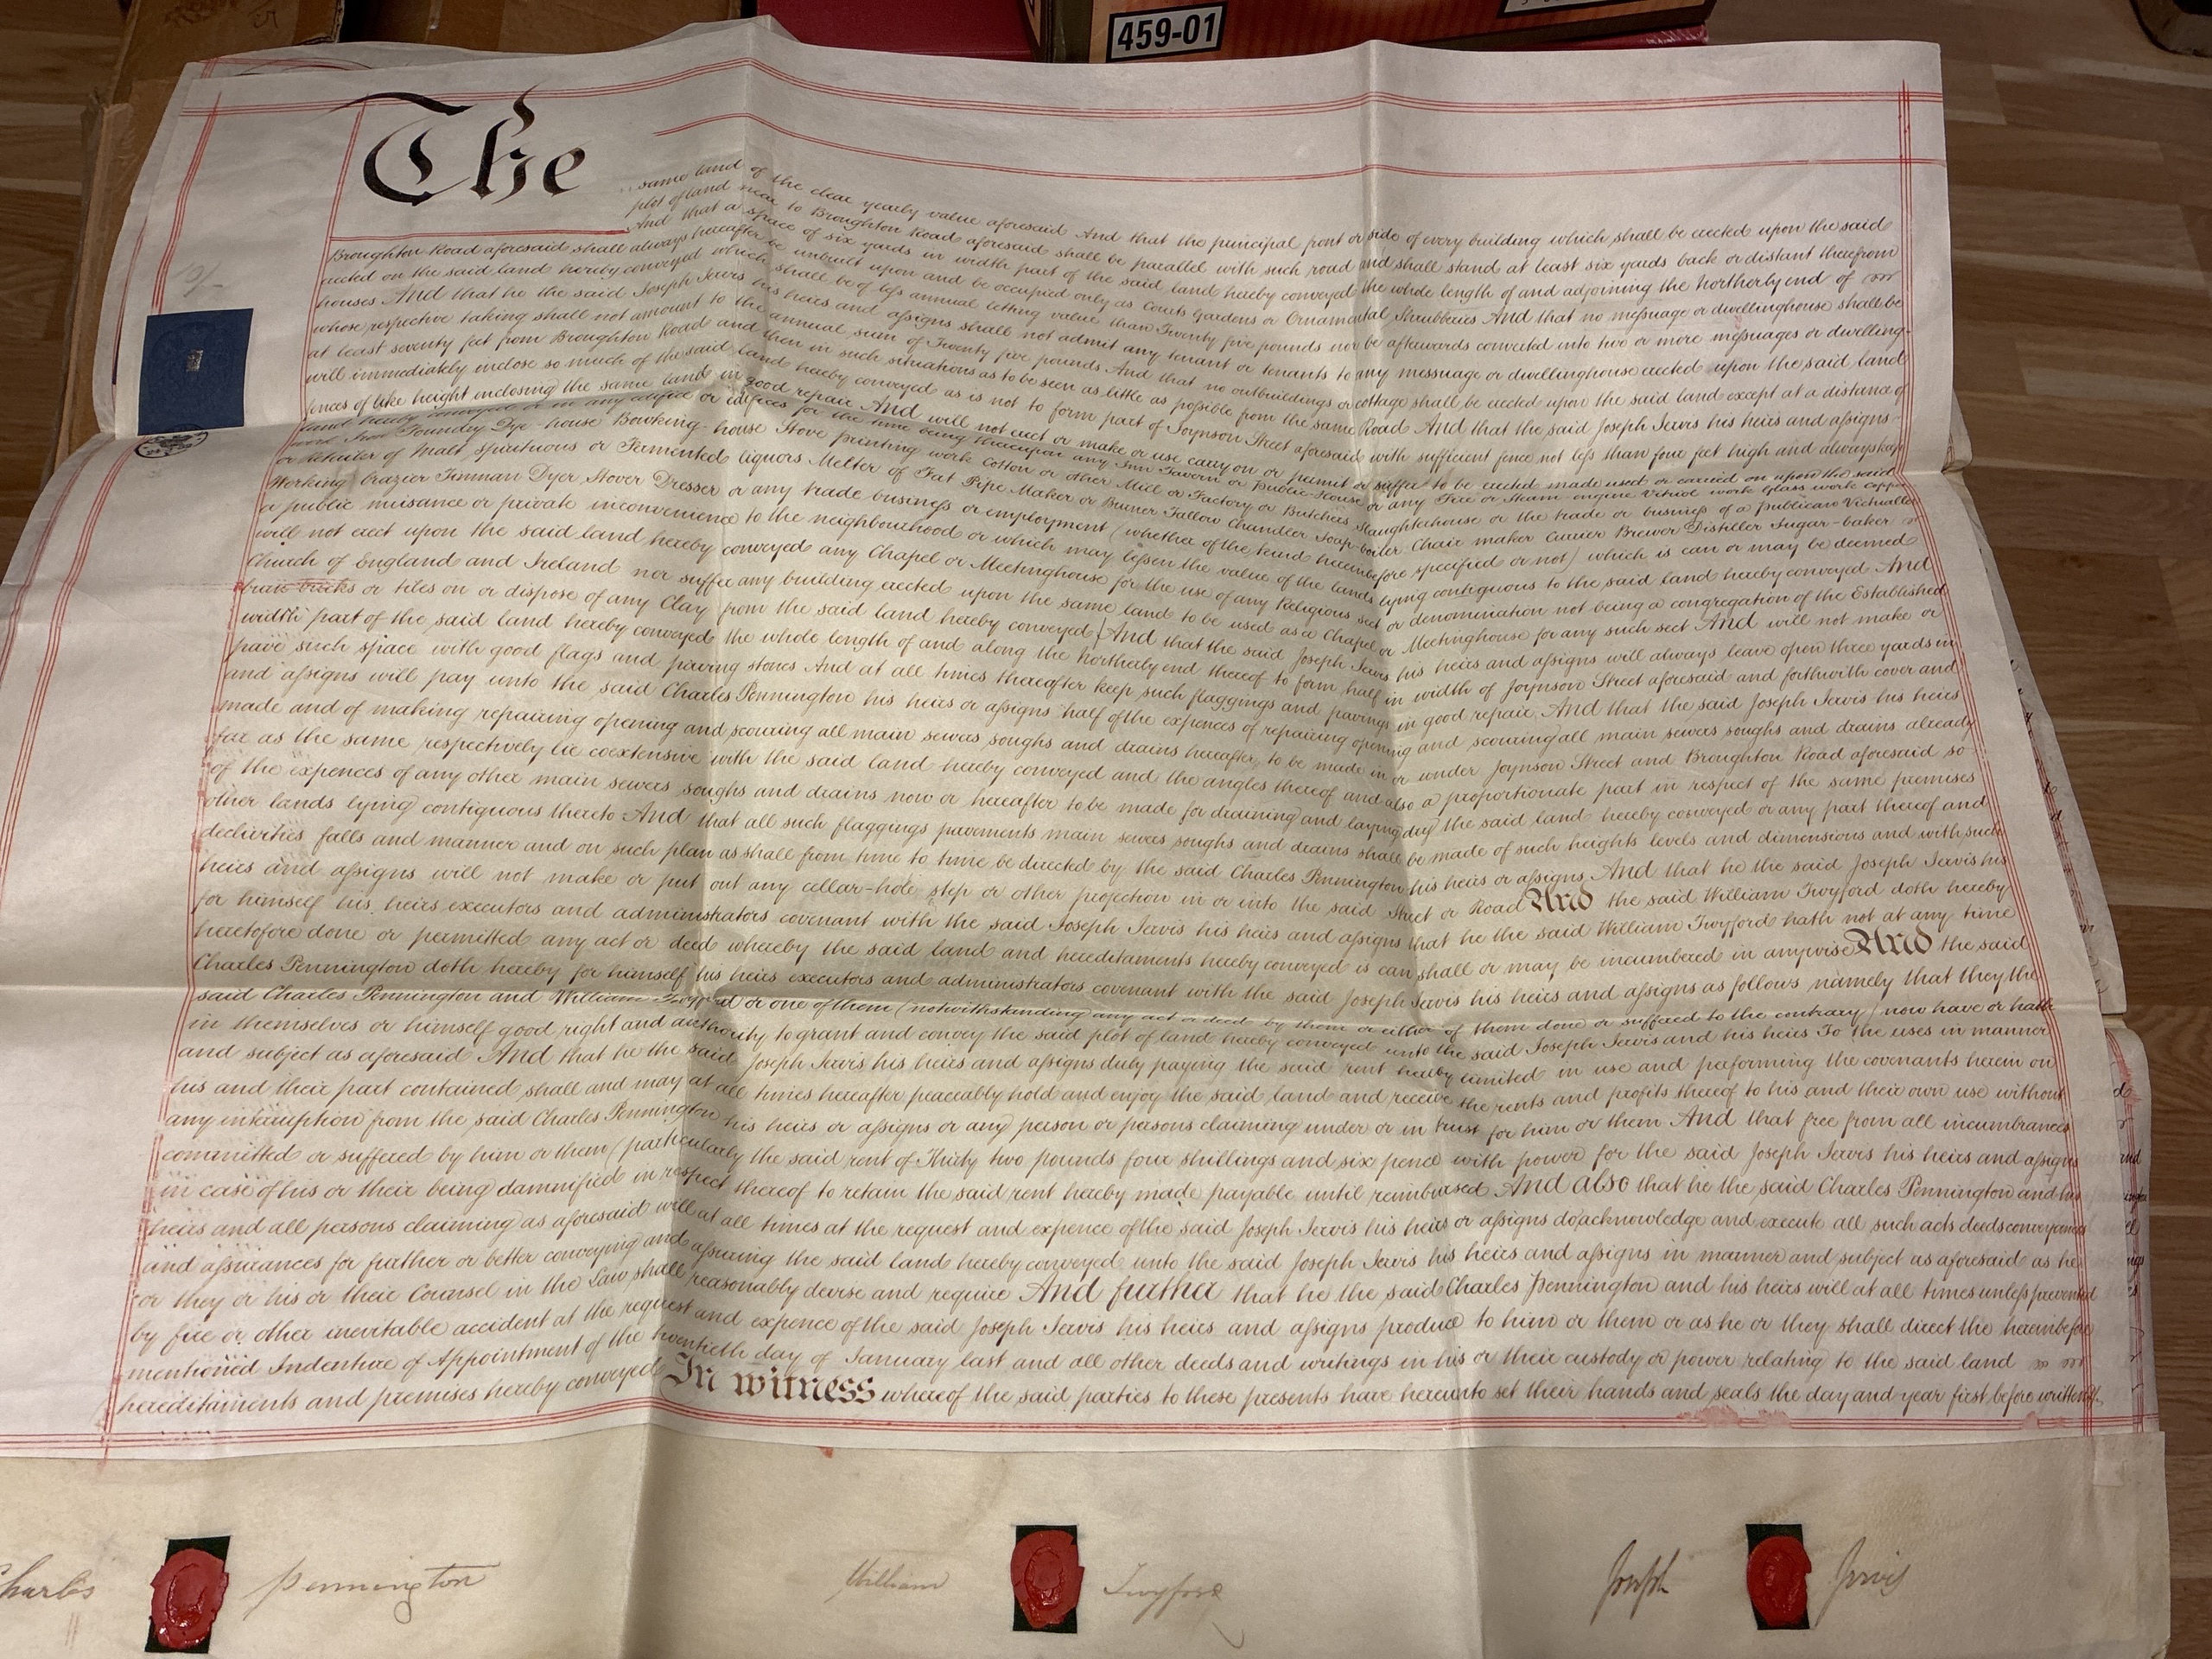 459-01
The
same land of the clear yearly value aforesaid And that the principal front or side of every building which shall be erected upon the said
plot of land near to Broughton Road aforesaid shall be parallel with such road and shall stand at least six yards back or distant therefrom
And that a space of six yards in width part of the said land hereby conveyed the whole length of and adjoining the Northerly end of
Broughton Road aforesaid shall always hereafter be unbuilt upon and be occupied only as Courts Gardens or Ornamental Shrubberies And that no meſsuage or dwellinghouse shall be
erected on the said land hereby conveyed which shall be of leſs annual letting value than Twenty five pounds nor be afterwards converted into two or more meſsuages or dwelling-
houses And that he the said Joseph Jervis his heirs and aſsigns shall not admit any tenant or tenants to any messuage or dwellinghouse erected upon the said land
whose respective taking shall not amount to the annual sum of Twenty five pounds And that no outbuildings or cottage shall be erected upon the said land except at a distance of
at least seventy feet from Broughton Road and then in such situations as to be seen as little as poſsible from the same Road And that the said Joseph Jervis his heirs and aſsigns
will immediately inclose so much of the said land hereby conveyed as is not to form part of Joynson Street aforesaid with sufficient fence not leſs than four feet high and always keep
fences of like height inclosing the same land in good repair And will not erect or make or use carry on or permit or suffer to be erected made used or carried on upon the said
land hereby conveyed or in any edifice or edifices for the time being thereupon any Inn Tavern or Public-House or any Fire or Steam engine Vitriol work Glass work Copper
work Iron Foundry Dye-house Bowking-house Stove printing work Cotton or other Mill or Factory or Butchers Slaughterhouse or the trade or business of a publican Victualler
or Retailer of Malt spirituous or Fermented liquors Melter of Fat Pipe Maker or Burner Tallow Chandler Soap-boiler Chair maker Currier Brewer Distiller Sugar-baker
Working Brazier Tinman Dyer Stover Dresser or any trade business or employment (whether of the kind hereinbefore specified or not) which is can or may be deemed
a public nuisance or private inconvenience to the neighbourhood or which may leſsen the value of the lands lying contiguous to the said land hereby conveyed And
will not erect upon the said land hereby conveyed any Chapel or Meetinghouse for the use of any Religious sect or denomination not being a congregation of the Established
Church of England and Ireland nor suffer any building erected upon the same land to be used as a Chapel or Meetinghouse for any such sect And will not make or
burn bricks or tiles on or dispose of any Clay from the said land hereby conveyed And that the said Joseph Jervis his heirs and aſsigns will always leave open three yards in
width part of the said land hereby conveyed the whole length of and along the Northerly end thereof to form half in width of Joynson Street aforesaid and forthwith cover and
pave such space with good flags and paving stones And at all times thereafter keep such flaggings and pavings in good repair And that the said Joseph Jervis his heirs
and aſsigns will pay unto the said Charles Pennington his heirs or aſsigns half of the expences of repairing opening and scouring all main sewers soughs and drains already
made and of making repairing opening and scouring all main sewers soughs and drains hereafter to be made in or under Joynson Street and Broughton Road aforesaid so
far as the same respectively lie coextensive with the said land hereby conveyed and the angles thereof and also a proportionate part in respect of the same premises
of the expences of any other main sewers soughs and drains now or hereafter to be made for draining and laying dry the said land hereby conveyed or any part thereof and
other lands lying contiguous thereto And that all such flaggings pavements main sewers soughs and drains shall be made of such heights levels and dimensions and with such
declivities falls and manner and on such plan as shall from time to time be directed by the said Charles Pennington his heirs or aſsigns And that he the said Joseph Jervis his
heirs and aſsigns will not make or put out any cellar-hole step or other projection in or into the said Street or Road And the said William Twyford doth hereby
for himself his heirs executors and administrators covenant with the said Joseph Jervis his heirs and aſsigns that he the said William Twyford hath not at any time
heretofore done or permitted any act or deed whereby the said land and hereditaments hereby conveyed is can shall or may be incumbered in anywise And the said
Charles Pennington doth hereby for himself his heirs executors and administrators covenant with the said Joseph Jervis his heirs and aſsigns as follows namely that they the
said Charles Pennington and William Twyford or one of them (notwithstanding any act or deed by them or either of them done or suffered to the contrary) now have or hath
in themselves or himself good right and authority to grant and convey the said plot of land hereby conveyed unto the said Joseph Jervis and his heirs To the uses in manner
and subject as aforesaid And that he the said Joseph Jervis his heirs and aſsigns duly paying the said rent hereby limited in use and performing the covenants herein on
his and their part contained shall and may at all times hereafter peaceably hold and enjoy the said land and receive the rents and profits thereof to his and their own use without
any interruption from the said Charles Pennington his heirs or aſsigns or any person or persons claiming under or in trust for him or them And that free from all incumbrances
committed or suffered by him or them (particularly the said rent of Thirty two pounds four shillings and six pence with power for the said Joseph Jervis his heirs and aſsigns
in case of his or their being damnified in respect thereof to retain the said rent hereby made payable until reimbursed And also that he the said Charles Pennington and his
heirs and all persons claiming as aforesaid will at all times at the request and expence of the said Joseph Jervis his heirs or aſsigns do acknowledge and execute all such acts deeds conveyances
and aſsurances for further or better conveying and aſsuring the said land hereby conveyed unto the said Joseph Jervis his heirs and aſsigns in manner and subject as aforesaid as he
or they or his or their Counsel in the Law shall reasonably devise and require And further that he the said Charles Pennington and his heirs will at all times unleſs prevented
by fire or other inevitable accident at the request and expence of the said Joseph Jervis his heirs and aſsigns produce to him or them or as he or they shall direct the hereinbefore
mentioned Indenture of Appointment of the twentieth day of January last and all other deeds and writings in his or their custody or power relating to the said land
hereditaments and premises hereby conveyed In witness whereof the said parties to these presents have hereunto set their hands and seals the day and year first before written
Charles Pennington
William Twyford
Joseph Jervis